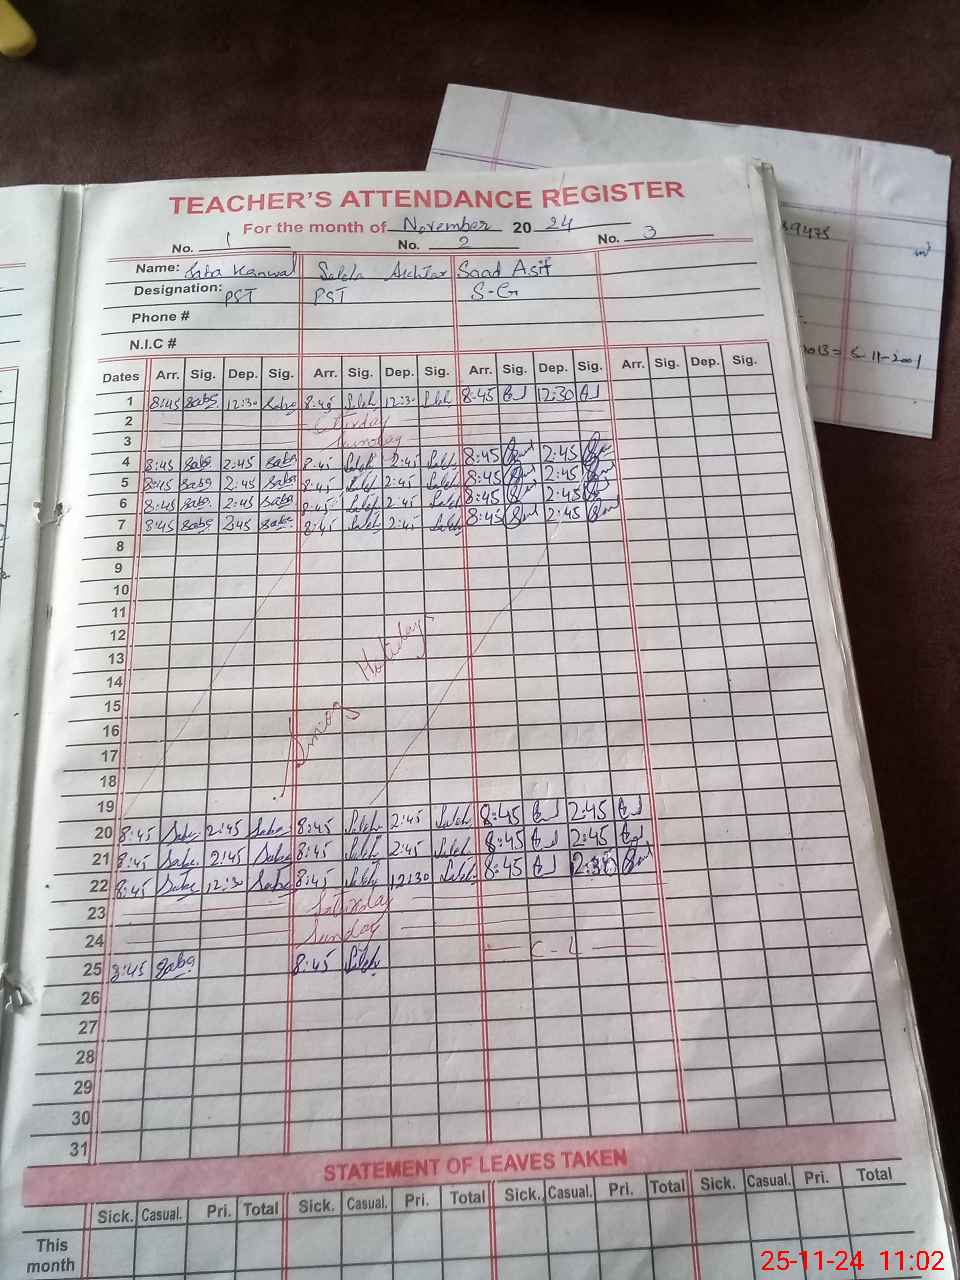 TEACHER'S ATTENDANCE REGISTER
For the month of November 2024
No. 1 No. 2 No. 3
Name: Saba Kanwal Akhtar Saad Asif
Designation: PST PST S-G
Phone #
N.I.C #
Dates Arr. Sig. Dep. Sig. Arr. Sig. Dep. Sig. Arr. Sig. Dep. Sig. Arr. Sig. Dep. Sig.
1 8:45 Saba 12:30 Saba 8:45 12:30 8:45 12:30
2
3 Sunday
4 8:45 Saba 2:45 Saba 8:45 2:45 8:45 2:45
5 8:45 Saba 2:45 Saba 8:45 2:45 8:45 2:45
6 8:45 Saba 2:45 Saba 8:45 2:45 8:45 2:45
7 8:45 Saba 2:45 Saba 8:45 2:45 8:45 2:45
8
9
10
11
12
13
14
15
16
17
18
Smog Holidays
19
20 8:45 Saba 2:45 Saba 8:45 2:45 8:45 2:45
21 8:45 Saba 2:45 Saba 8:45 2:45 8:45 2:45
22 8:45 Saba 12:30 Saba 8:45 12:30 8:45
23 Saturday
24 Sunday
25 8:45 Saba 8:45 C-L
26
27
28
29
30
31
STATEMENT OF LEAVES TAKEN
Sick. Casual. Pri. Total Sick. Casual. Pri. Total Sick. Casual. Pri. Total Sick. Casual. Pri. Total
This
month
9475
5-11-2001
25-11-24 11:02